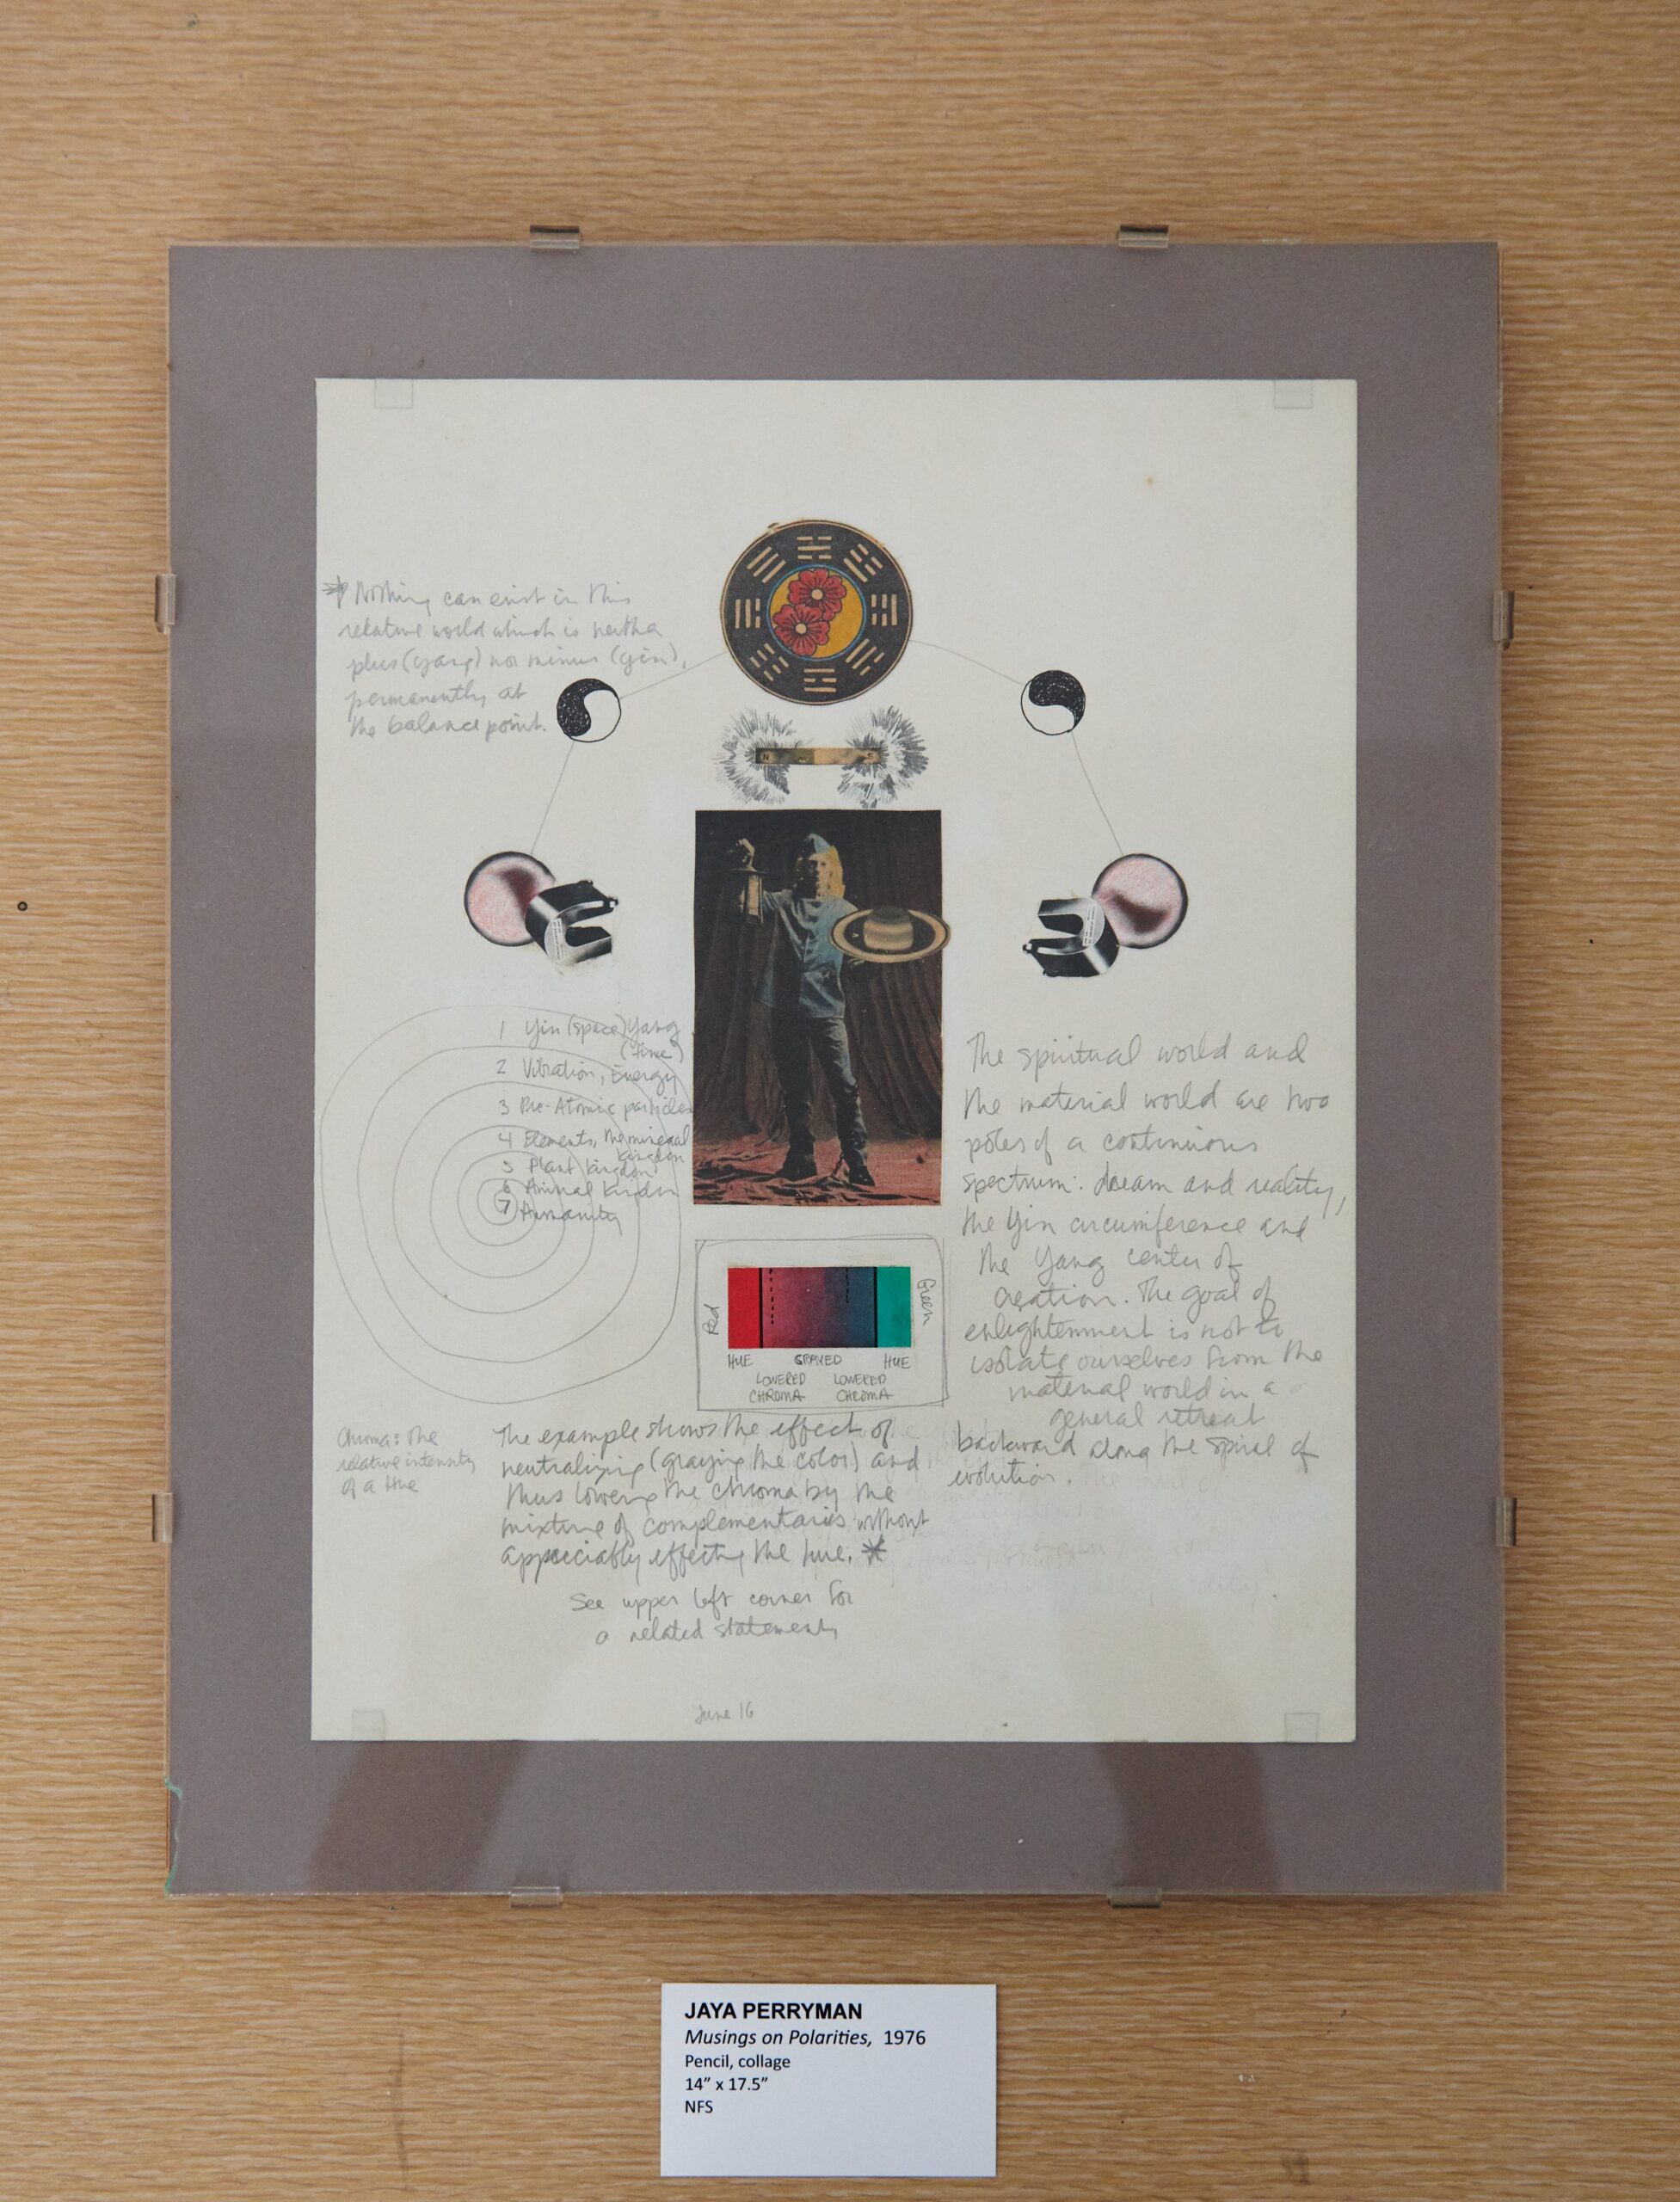 * Nothing can exist in this
relative world which is neither
plus (yang) nor minus (yin),
permanently at
the balance point.
N S
1 Yin (space) Yang
(time)
2 Vibration, Energy
3 Pre-Atomic particles
4 Elements, the mineral
kingdom
5 Plant kingdom
6 Animal kingdom
7 Humanity
The spiritual world and
the material world are two
poles of a continuous
spectrum: dream and reality,
the Yin circumference and
the Yang center of
creation. The goal of
enlightenment is not to
isolate ourselves from the
material world in a
general retreat
backward along the spiral of
evolution.
Red
Green
HUE GRAYED HUE
LOWERED LOWERED
CHROMA CHROMA
Chroma: The
relative intensity
of a Hue
The example shows the effect of
neutralizing (graying the color) and
thus lowering the chroma by the
mixture of complementaries without
appreciably effecting the hue. *
See upper left corner for
a related statement
June 16
JAYA PERRYMAN
Musings on Polarities, 1976
Pencil, collage
14” x 17.5”
NFS